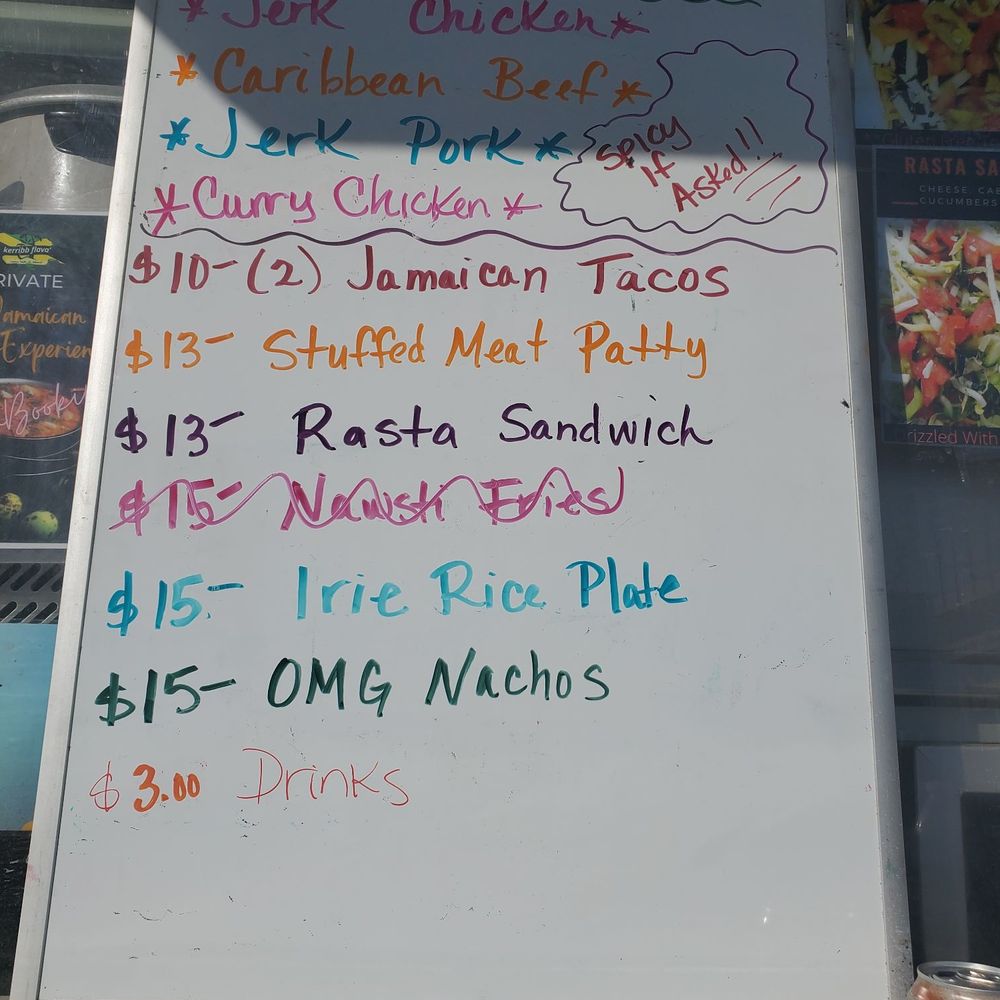 *Jerk Chicken*
*Caribbean Beef*
*Jerk Pork*
*Curry Chicken*
Spicy
If
Asked!!
$10-(2) Jamaican Tacos
$13- Stuffed Meat Patty
$13- Rasta Sandwich
$15- Fries
$15.- Irie Rice Plate
$15- OMG Nachos
$3.00 Drinks
kerribb flava'
RIVATE
amaican
Experien
Booki
RASTA SA
CHEESE, CA
CUCUMBERS
rizzled With